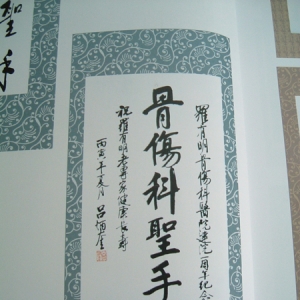 羅有明骨傷科醫院建院一周年紀念
骨傷科聖手
祝羅有明老專家健康長壽
丙寅年夏月 吕
聖手